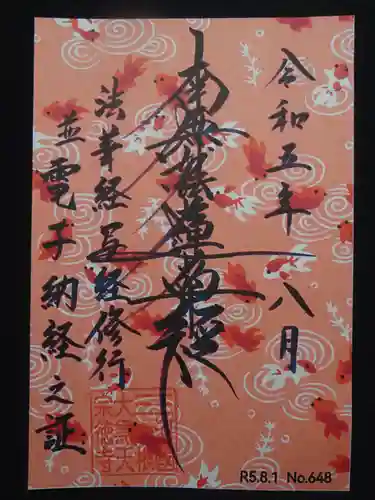 令和五年八月
南無妙法蓮華経
法華経写経修行
並電子納経之証
R5.8.1 No.648